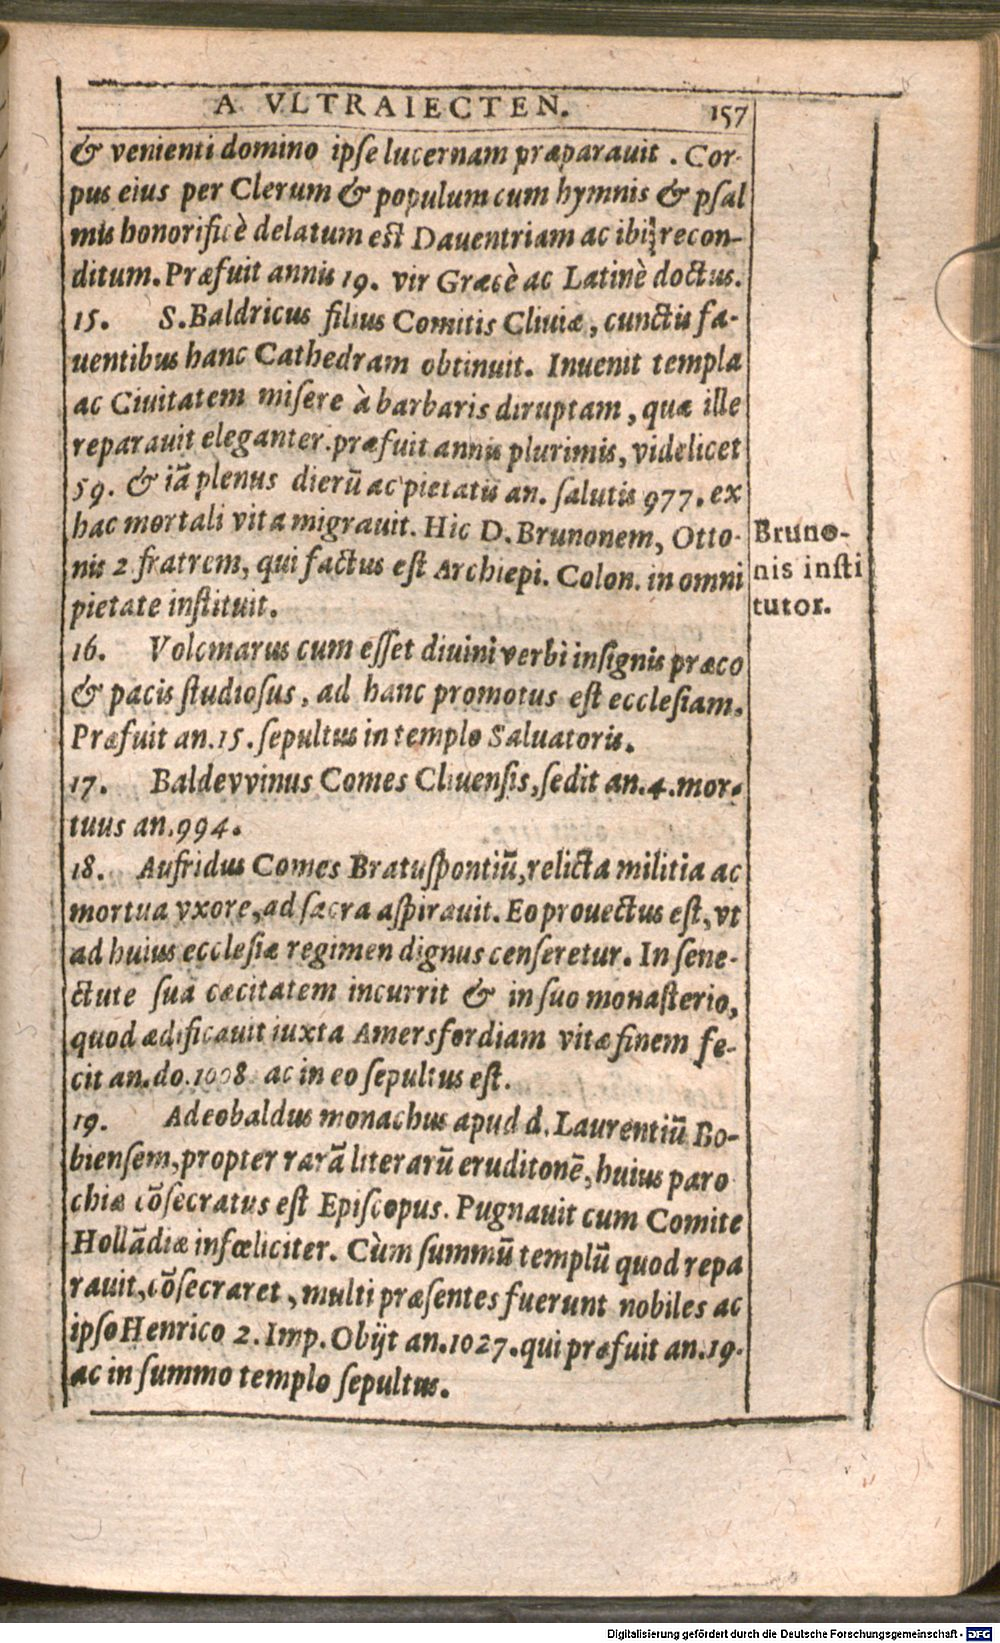 A VLTRAIECTEN. 157
& venienti domino ipſe lucernam præparauit. Cor-
pus eius per Clerum & populum cum hymnis & pſal
mis honorificè delatum eſt Dauentriam ac ibi recon-
ditum. Præfuit annis 19. vir Græcè ac Latinè doctus.
15. S. Baldricus filius Comitis Cliuiæ, cunctis fa-
uentibus hanc Cathedram obtinuit. Inuenit templa
ac Ciuitatem miſere à barbaris diruptam, quæ ille
reparauit eleganter. præfuit annis plurimis, videlicet
59. & iā plenus dierū ac pietatis an. ſalutis 977. ex
hac mortali vita migrauit. Hic D. Brunonem, Otto-
nis 2 fratrem, qui factus eſt Archiepi. Colon. in omni
pietate inſtituit.
Bruno-
nis inſti
tutor.
16. Volcmarus cum eſſet diuini verbi inſignis præco
& pacis ſtudioſus, ad hanc promotus eſt eccleſiam.
Præfuit an. 15. ſepultus in templo Saluatoris.
17. Baldevvinus Comes Cliuenſis, ſedit an. 4. mor-
tuus an. 994.
18. Aufridus Comes Bratuſpontiū, relicta militia ac
mortua vxore, ad ſacra aſpirauit. Eo prouectus eſt, vt
ad huius eccleſiæ regimen dignus cenſeretur. In ſene-
ctute ſua cæcitatem incurrit & in ſuo monaſterio,
quod ædificauit iuxta Amersfordiam vitæ finem fe-
cit an. do. 1008. ac in eo ſepultus eſt.
19. Adeobaldus monachus apud d. Laurentiū Bo-
bienſem, propter rarā literarū eruditonē, huius paro
chiæ cōſecratus eſt Epiſcopus. Pugnauit cum Comite
Hollādiæ infœliciter. Cùm ſummū templū quod repa
rauit, cōſecraret, multi præſentes fuerunt nobiles ac
ipſo Henrico 2. Imp. Obijt an. 1027. qui præfuit an. 19.
ac in ſummo templo ſepultus.
Digitalisierung gefördert durch die Deutsche Forschungsgemeinschaft - DFG